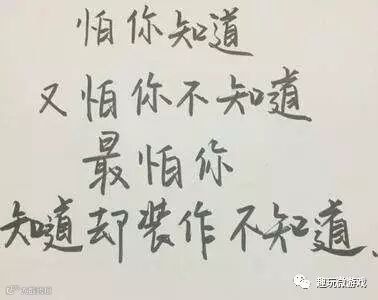 怕你知道
又怕你不知道
最怕你
知道却装作不知道、
趣玩微游戏